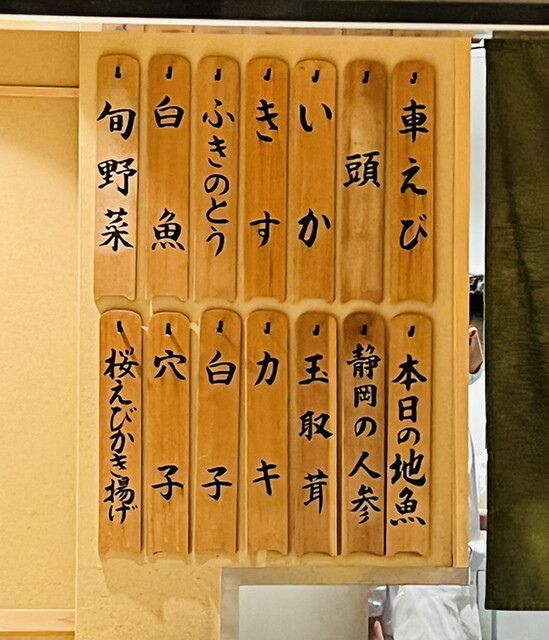 車えび
頭
いか
きす
ふきのとう
白魚
旬野菜
本日の地魚
静岡の人参
玉取茸
カキ
白子
穴子
桜えびかき揚げ